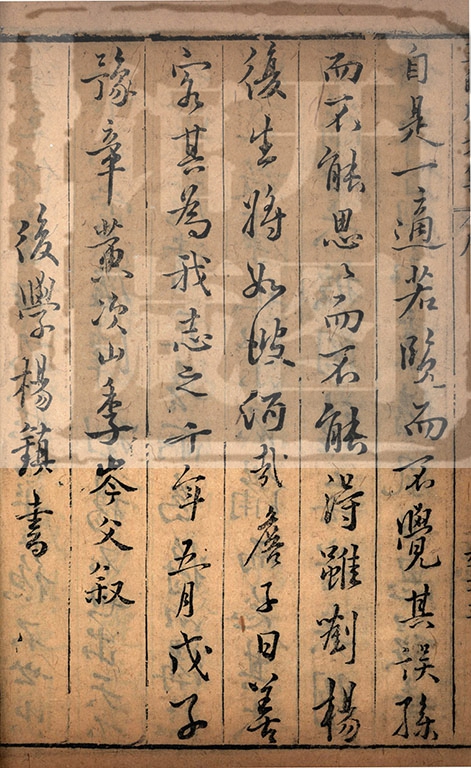 自是一適若臨而不覺其誤孫
而不能思〻而不能得雖劉楊
復生將如彼何哉詹子曰善
客其為我志之千年五月戊子
豫章黃次山季岑父叙
後學楊鎮書